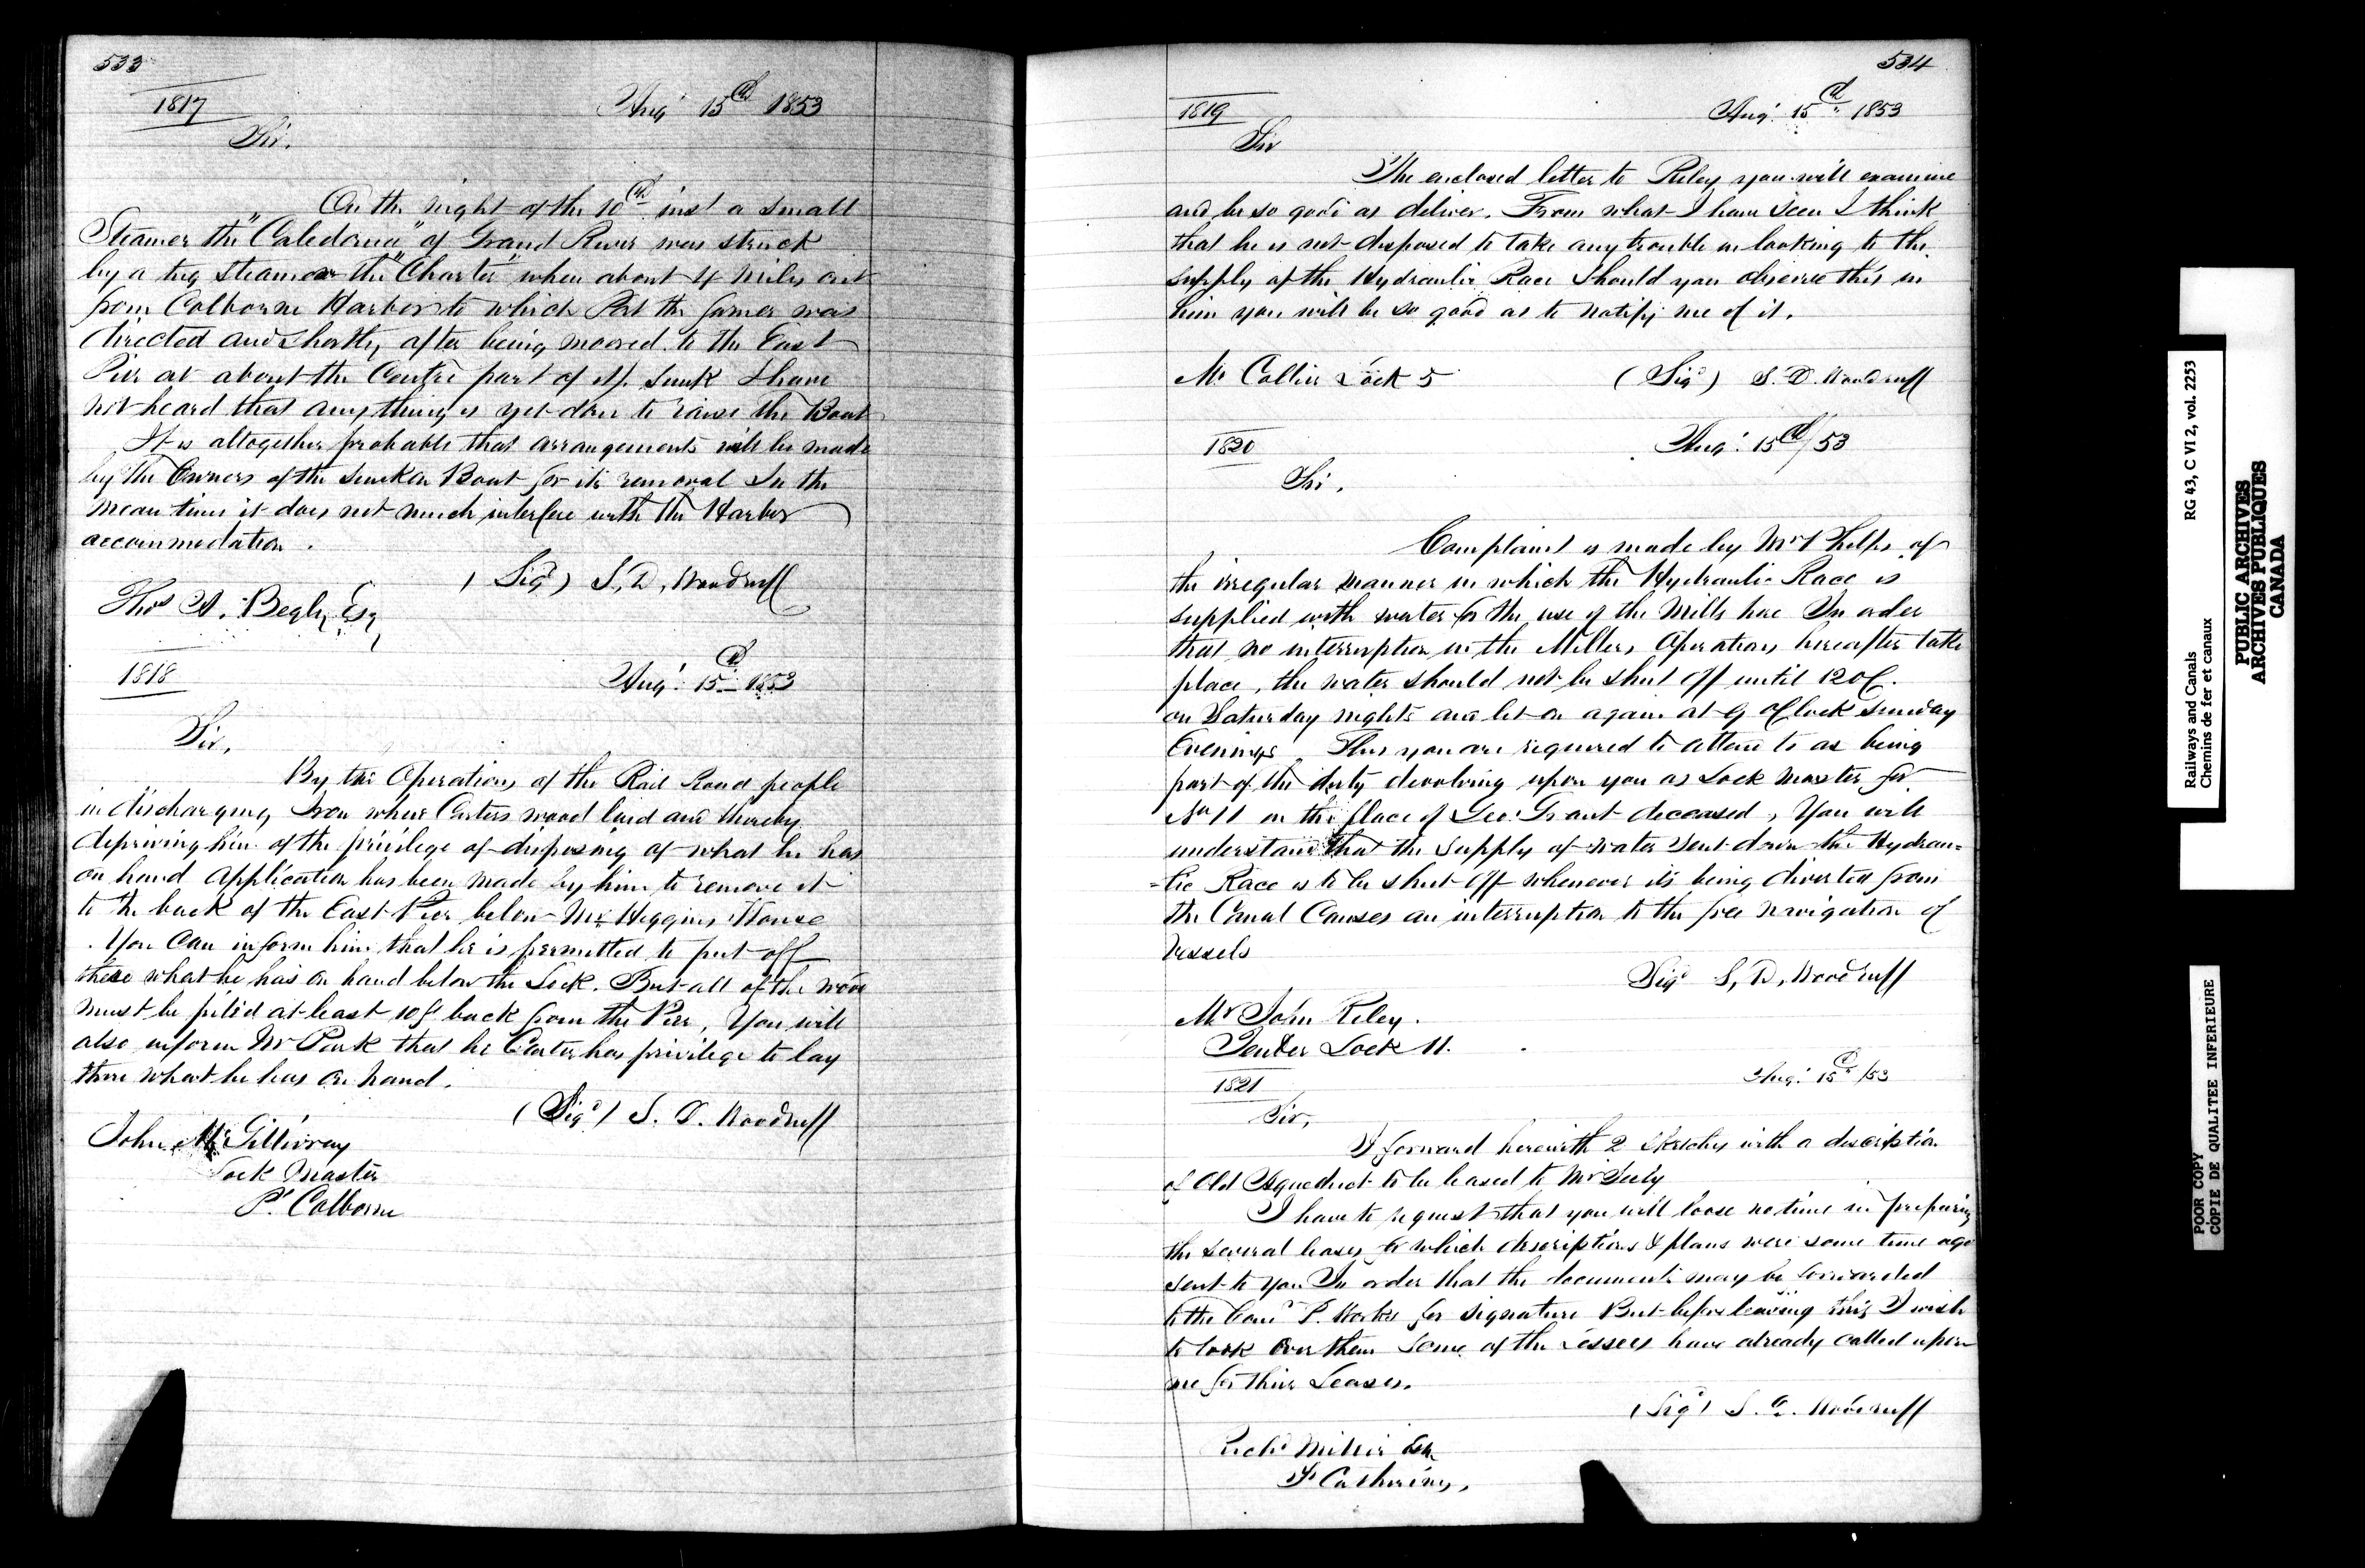 533
1817
Augt 15th 1853
Sir.
On the night of the 10th inst a small
Steamer the "Caledonia" of Grand River was struck
by a tug steamer the "Charter" when about 4 miles out
from Colborne Harbor to which Port the former was
directed and shortly after being moored to the East
Pier at about the Centre part of it, sunk I have
not heard that anything is yet done to raise the Boat
It is altogether probable that arrangements will be made
by the Owners of the sunken Boat for its removal In the
mean time it does not much interfere with the Harbor
accommodation.
(Sigd) S, D, Woodruff
Thos A. Begly, Esq
1818
Augt. 15th 1853
Sir,
By the Operations of the Rail Road people
in discharging Iron where Carters wood laid and thereby
depriving him of the privilege of disposing of what he has
on hand application has been made by him to remove it
to the back of the East Pier below Mr Higgins House
. You can inform him that he is permitted to put off
these what he has on hand below the Lock. But all of the wood
must be piled at least 10 f back from the Pier, You will
also inform Mr Park that he Carter has privilege to lay
there what he has on hand.
(Sigd) S. D. Woodruff
John McGillivray
Lock Master
Pt Colborne
534
1819
Augt. 15th 1853
Sir
The enclosed letter to Riley you will examine
and be so good as deliver. From what I have seen I think
that he is not disposed to take any trouble in looking to the
supply of the Hydraulic Race Should you observe this in
him you will be so good as to notify me of it.
Mr Collier Lock 5
(Sigd) S. D. Woodruff
1820
Augt. 15th/53
Sir.
Complaint is made by Mr Phelps of
the irregular manner in which the Hydraulic Race is
supplied with water for the use of the Mills here In order
that no interruption in the Millers Operations hereafter take
place, the water should not be shut off until 12 oC.
on Saturday nights and let on again at 9 oClock Sunday
Evenings This you are required to attend to as being
part of the duty devolving upon you as Lock Master for
No 11 in the place of Geo: Grant deceased, You will
understand that the supply of water sent down the Hydrau=
=lic Race is to be shut off whenever its being diverted from
the Canal Causes an interruption to the free navigation of
Vessels
Sigd S, D, Woodruff
Mr John Riley.
Tender Lock 11.
1821
Augt. 15th/53
Sir,
I forward herewith 2 sketches with a description
of Old Aqueduct to be leased to Mr Seely
I have to request that you will loose no time in preparing
the several leases for which descriptions & plans were some time ago
sent to you In order that the documents may be forwarded
to the Comr P. Works for signature But before leaving this I wish
to look over them Some of the Lessees have already called upon
me for their Leases.
(Sigd) S. D. Woodruff
Richd Miller Esq
St Catherines,
Railways and Canals
Chemins de fer et canaux
RG 43, C VI 2, vol. 2253
PUBLIC ARCHIVES
ARCHIVES PUBLIQUES
CANADA
POOR COPY
COPIE DE QUALITEE INFERIEURE